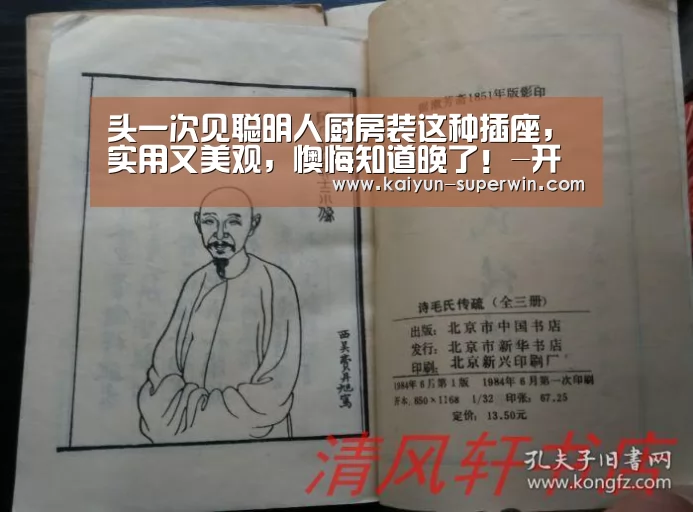 头一次见聪明人厨房装这种插座，
实用又美观，懊悔知道晚了！-开
www.kaiyun-superwin.com
西吴费丹旭写
漱芳斋1851年版影印
诗毛氏传疏（全三册）
出版：北京市中国书店
发行：北京市新华书店
印刷：北京新兴印刷厂
1984年6月第1版 1984年6月第一次印刷
开本：850×1168 1/32 印张：67.25
定价：13.50元
清风轩书店
孔夫子旧书网
www.kongfz.com